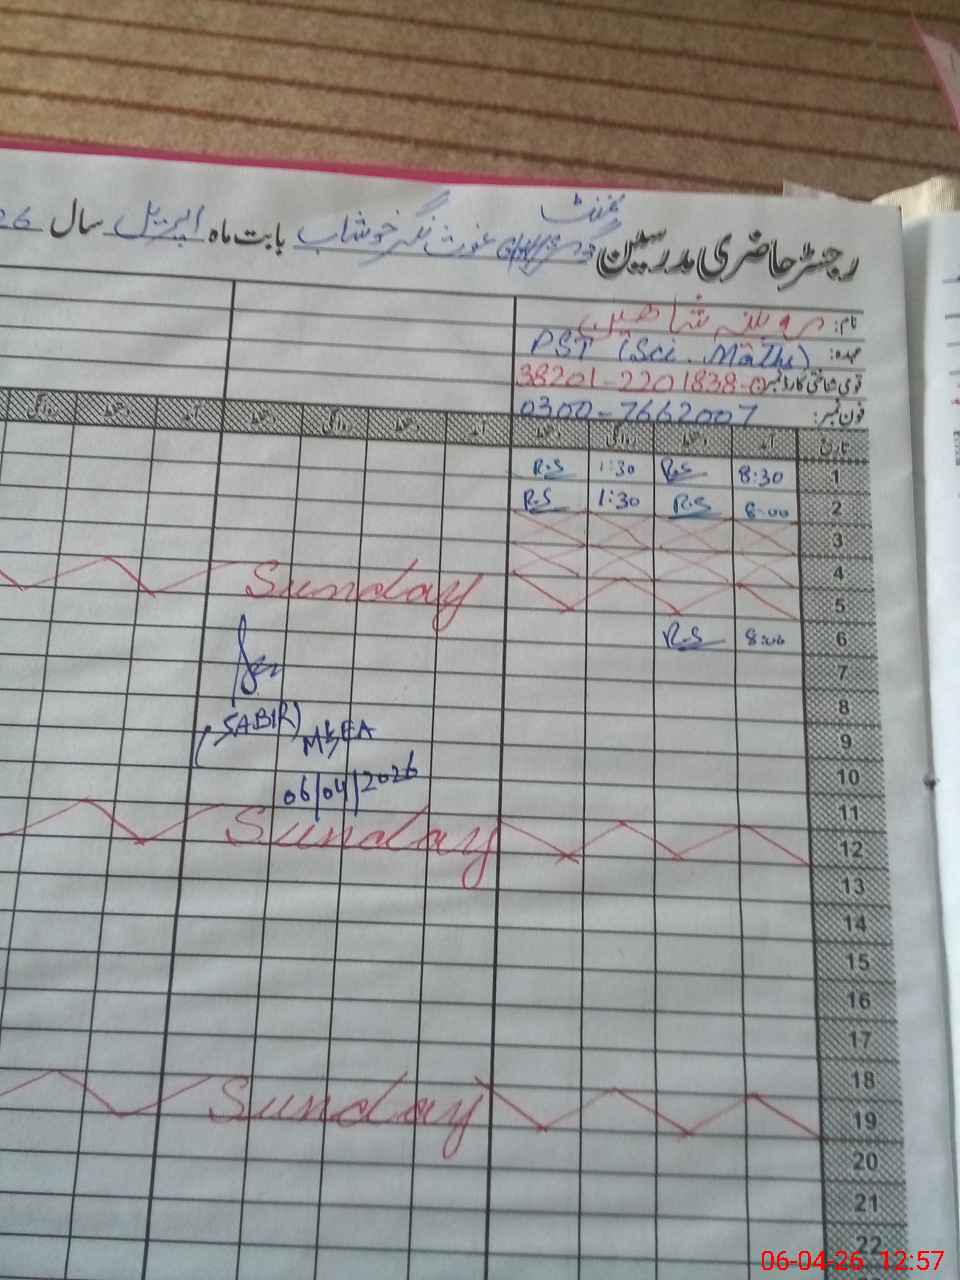 رجسٹر حاضری مدرسین گورنمنٹ غوث نگر خوشاب بابت ماہ اپریل سال 26
نام: روبینہ شاھین
عہدہ: PST (Sci. Maths)
قومی شناختی کارڈ نمبر: 38201-2201838-0
فون نمبر: 0300-7662007
تاریخ آمد دستخط روانگی دستخط آمد دستخط روانگی دستخط آمد دستخط روانگی
1 8:30 R.S 1:30 R.S
2 8:00 R.S 1:30 R.S
3
4
5 Sunday
6 8:00 R.S
7
8
(SABIR)
9
MEA
10
06/04/2026
11
12 Sunday
13
14
15
16
17
18
19 Sunday
20
21
22
06-04-26 12:57